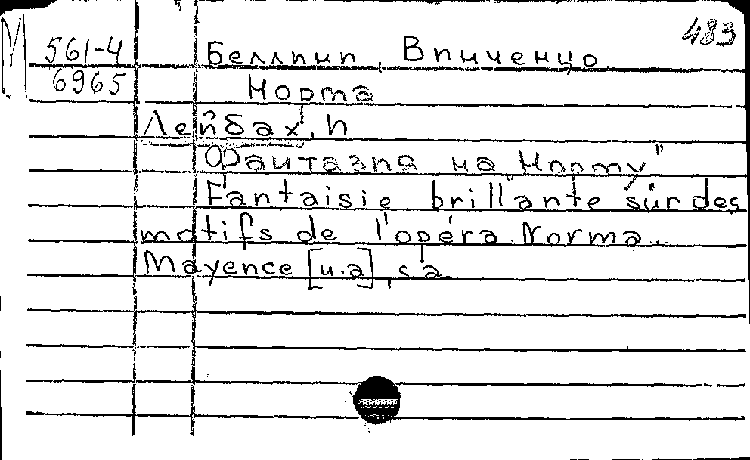 483
М 561-4
6965
Беллини, Винченцо.
Норма
Лейбах, И
Фантазия на „Норму"
Fantaisie brillante sur des
motifs de l'opéra Norma.
Mayence [u.a], s a